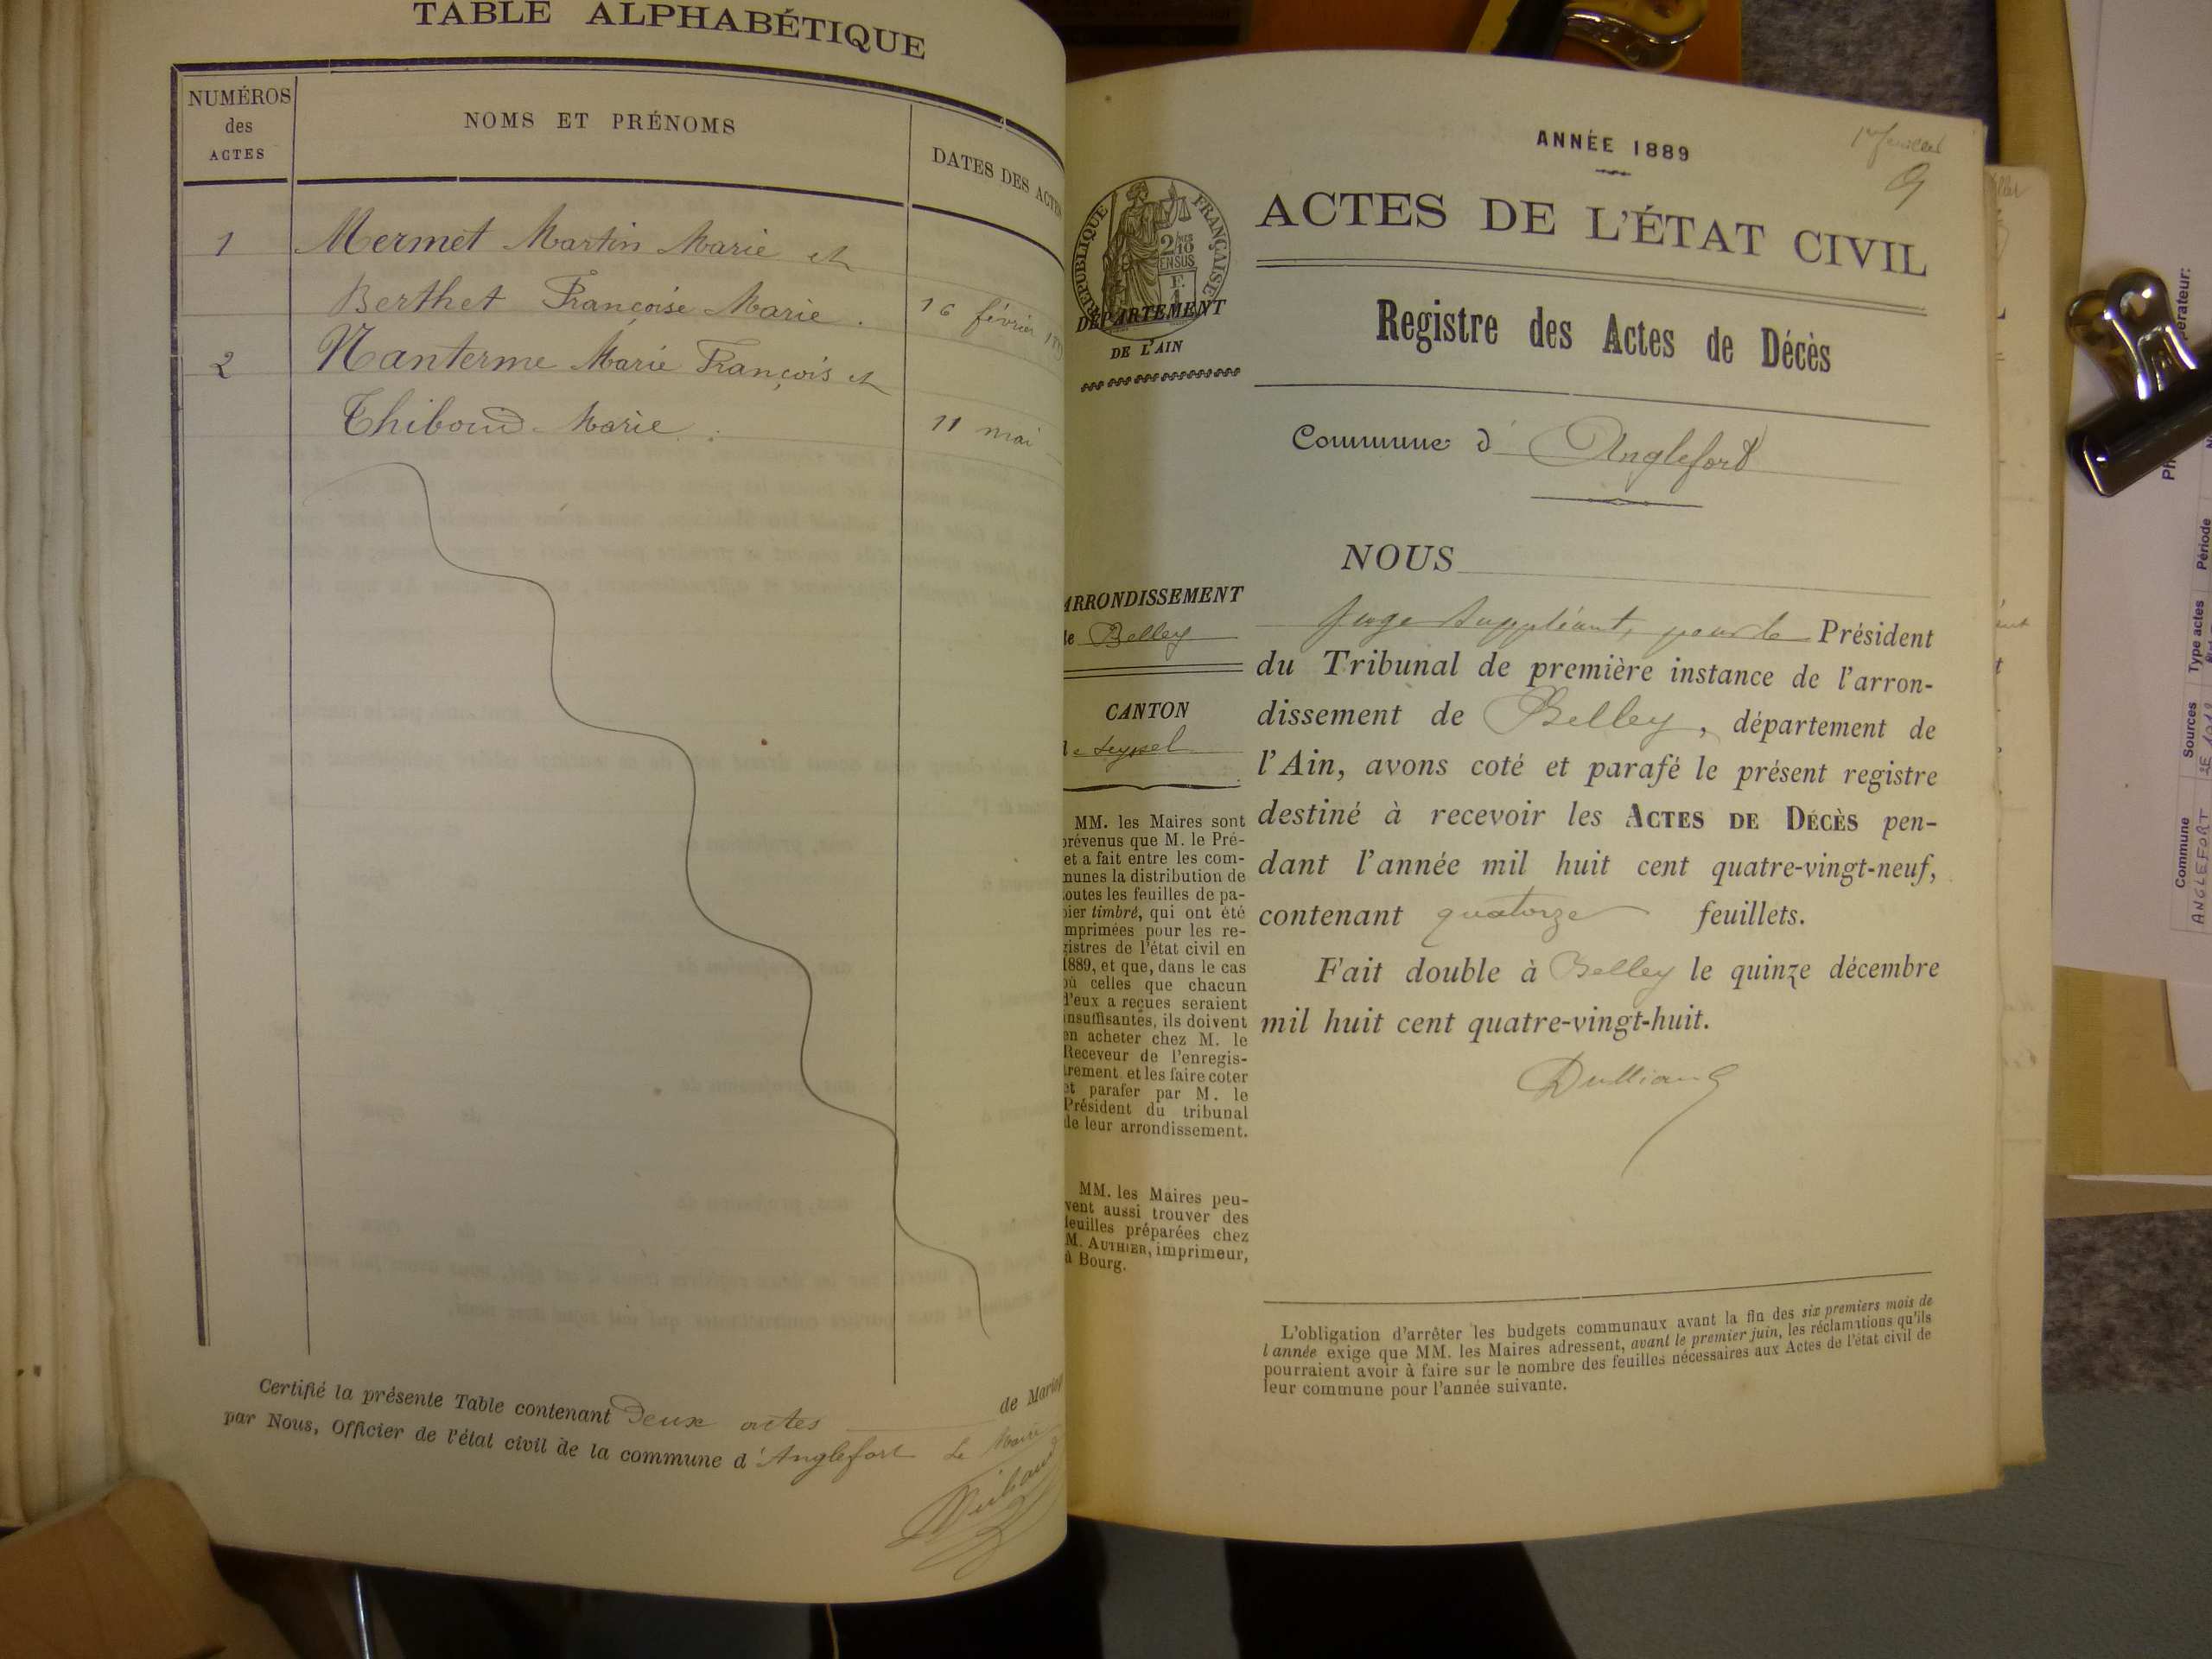 TABLE ALPHABÉTIQUE
NUMÉROS
des
ACTES
NOMS ET PRÉNOMS
DATES DES ACTES
1 Mermet Martin Marie et
Berthet Françoise Marie. 16 février
2 Nanterme Marie François et
Thiboud Marie. 11 mai
Certifié la présente Table contenant Deux actes de Mariag
par Nous, Officier de l'état civil de la commune d'Anglefort Le Maire
1er feuillet
ANNÉE 1889
ACTES DE L'ÉTAT CIVIL
RÉPUBLIQUE FRANÇAISE
2/10
EN SUS
F.
1
DÉPARTEMENT
DE L'AIN
Registre des Actes de Décès
Commune d'Anglefort
ARRONDISSEMENT
de Belley
CANTON
de Seyssel
MM. les Maires sont
prévenus que M. le Pré-
et a fait entre les com-
munes la distribution de
toutes les feuilles de pa-
pier timbré, qui ont été
imprimées pour les re-
gistres de l'état civil en
1889, et que, dans le cas
où celles que chacun
d'eux a reçues seraient
insuffisantes, ils doivent
en acheter chez M. le
Receveur de l'enregis-
trement et les faire coter
et parafer par M. le
Président du tribunal
de leur arrondissement.
MM. les Maires peu-
vent aussi trouver des
feuilles préparées chez
M. AUTHIER, imprimeur,
à Bourg.
NOUS
Juge Suppléant, pour le Président
du Tribunal de première instance de l'arron-
dissement de Belley, département de
l'Ain, avons coté et parafé le présent registre
destiné à recevoir les ACTES DE DÉCÈS pen-
dant l'année mil huit cent quatre-vingt-neuf,
contenant quatorze feuillets.
Fait double à Belley le quinze décembre
mil huit cent quatre-vingt-huit.
L'obligation d'arrêter les budgets communaux avant la fin des six premiers mois de
l'année exige que MM. les Maires adressent, avant le premier juin, les réclamations qu'ils
pourraient avoir à faire sur le nombre des feuilles nécessaires aux Actes de l'état civil de
leur commune pour l'année suivante.
Commune
ANGLEFORT
Sources
Type actes
Période